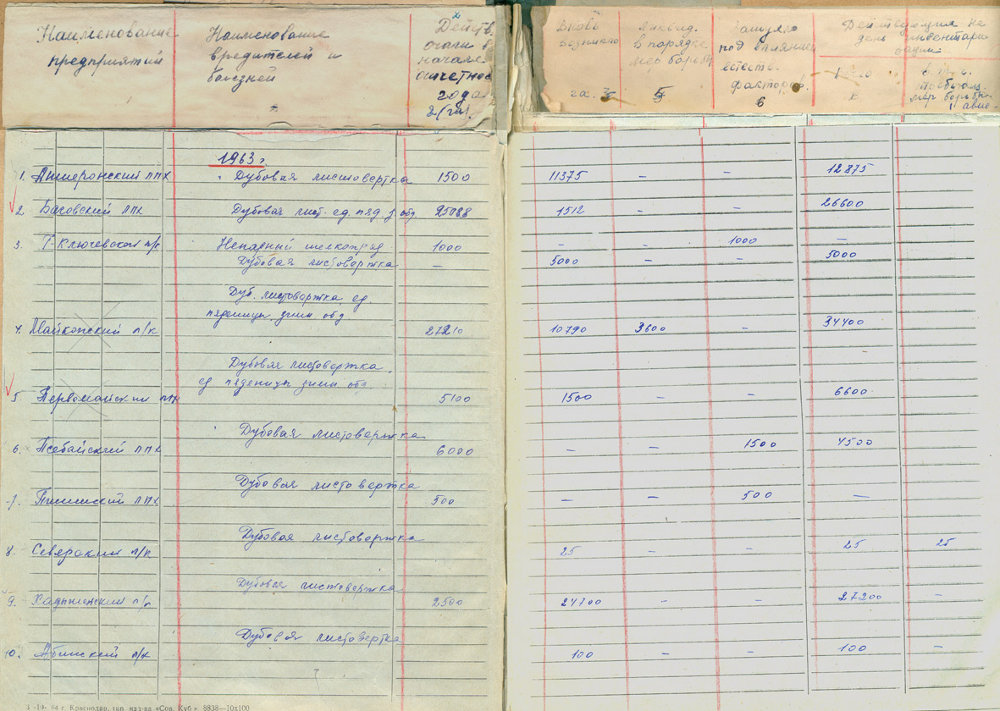 Наименование предприятий
Наименование вредителей и болезней
Действ. очаги в начале отчетного года 2 (га).
Вновь возникло га. 3
Ликвид. в порядке мер борьбы 5
под влиянием естеств. факторов 6
Действующия на день инвентаризации
в т.ч. мер борьбы
1963 г.
1. Апшеронский ЛПХ Дубовая листовертка 1500 11375 – – 12875
2. Баговский ЛПХ Дубовая лист. ед. пяд. з. обд 25088 1512 – – 26600
3. Г-Ключевской л/х Непарный шелкопряд 1000 – – 1000 –
Дубовая листовертка – 5000 – – 5000
Дуб. листовертка ед
пяденицы зимн обд
4. Майкопский л/х 27210 10790 3600 – 34400
Дубовая листовертка
ед пяденицы зимн обд
5 Первомайский ЛПХ 5100 1500 – – 6600
Дубовая листовертка
6. Псебайский ЛПХ 6000 – – 1500 4500
Дубовая листовертка
7. Пшишский ЛПХ 500 – – 500 –
Дубовая листовертка
8. Северский л/х 25 – – 25 25
Дубовая листовертка
9. Хадыженский л/х 2500 24700 – – 27200 –
Дубовая листовертка
10. Абинский л/х 100 – – 100 –
г. Краснодар, тип. изд-ва «Сов. Куб.» 8838—10х100